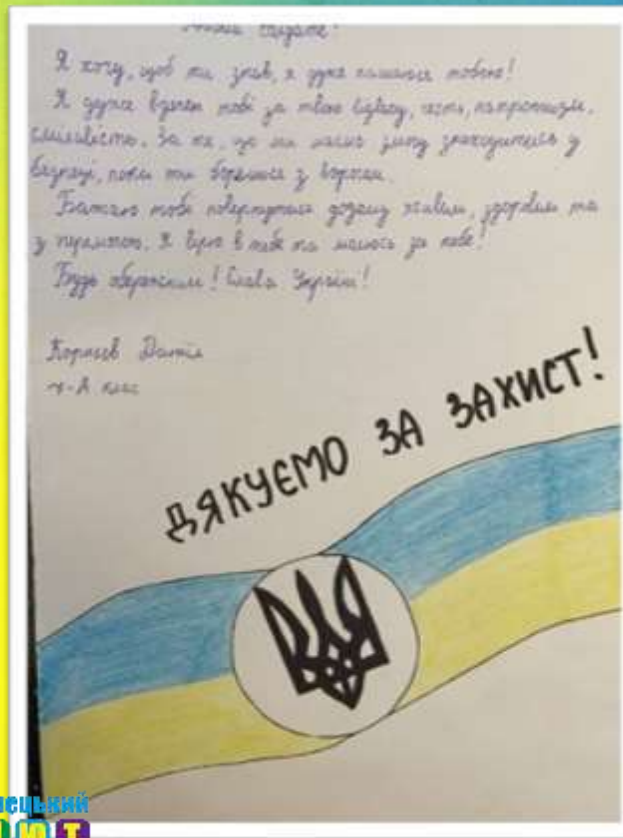 Я хочу, щоб ти знав, я дуже пишаюся тобою!
Я дуже вдячен тобі за твою відвагу, честь, патріотизм,
сміливість. За те, що ми маємо змогу знаходитись у
безпеці, поки ти борешся з ворогом.
Бажаю тобі повернутися додому живим, здоровим та
з перемогою. Я вірю в тебе та молюсь за тебе!
Будь обережним! Слава Україні!
Данило
клас
ДЯКУЄМО ЗА ЗАХИСТ!